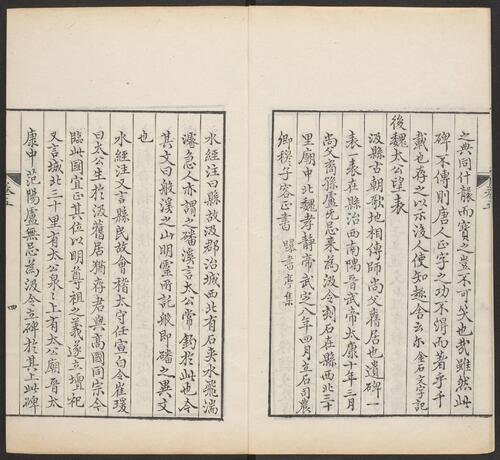 之典同什襲而寶之豈不可哉雖然此
碑不傳則唐人正字之功不得而著乎千
載也存之以示後人使知趣舍云尒金石文字記
後魏太公望表
汲縣古朝歌地相傳師尚父舊居也遺碑一
表一表在縣治西南隅晉武帝太康十年三月
尚父裔孫盧无忌來為汲令刻石在縣西北三十
里廟中北魏孝靜帝武定八年四月立石司農
卿穆子容正書 曝書亭集
水經注曰縣故汲郡治城西北有石夾水飛湍
濬急人亦謂之磻溪言太公常釣於此也今
其文曰般溪之山明靈所託般即磻之異文
也
水經注又言縣民故會稽太守任宣白令崔瑗
曰太公生於汲舊居猶存君與高國同宗今
臨此國宜正其位以明尊祖之義遂立壇祀
又言城北三十里有太公泉泉上有太公廟晉太
康中范陽盧無忌為汲令立碑於其上此碑
四